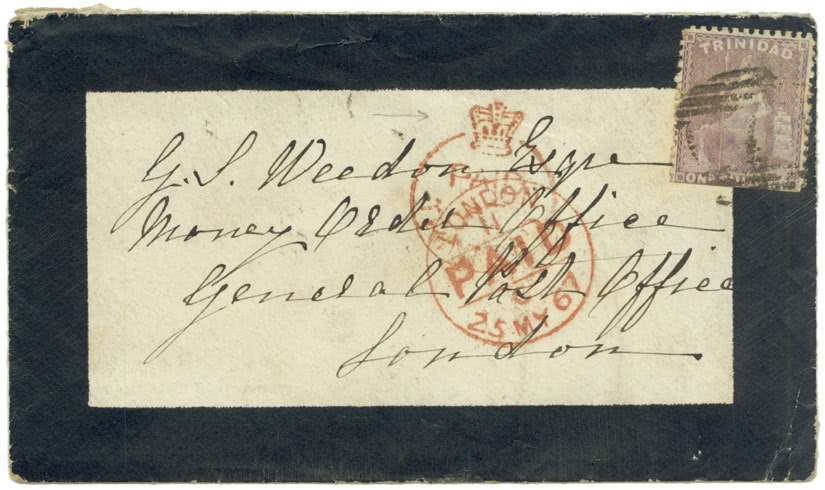 TRINIDAD
G. S. Weedon Esqre
Money Order Office
General Post Office
London
LONDON
PAID
25 MY 67